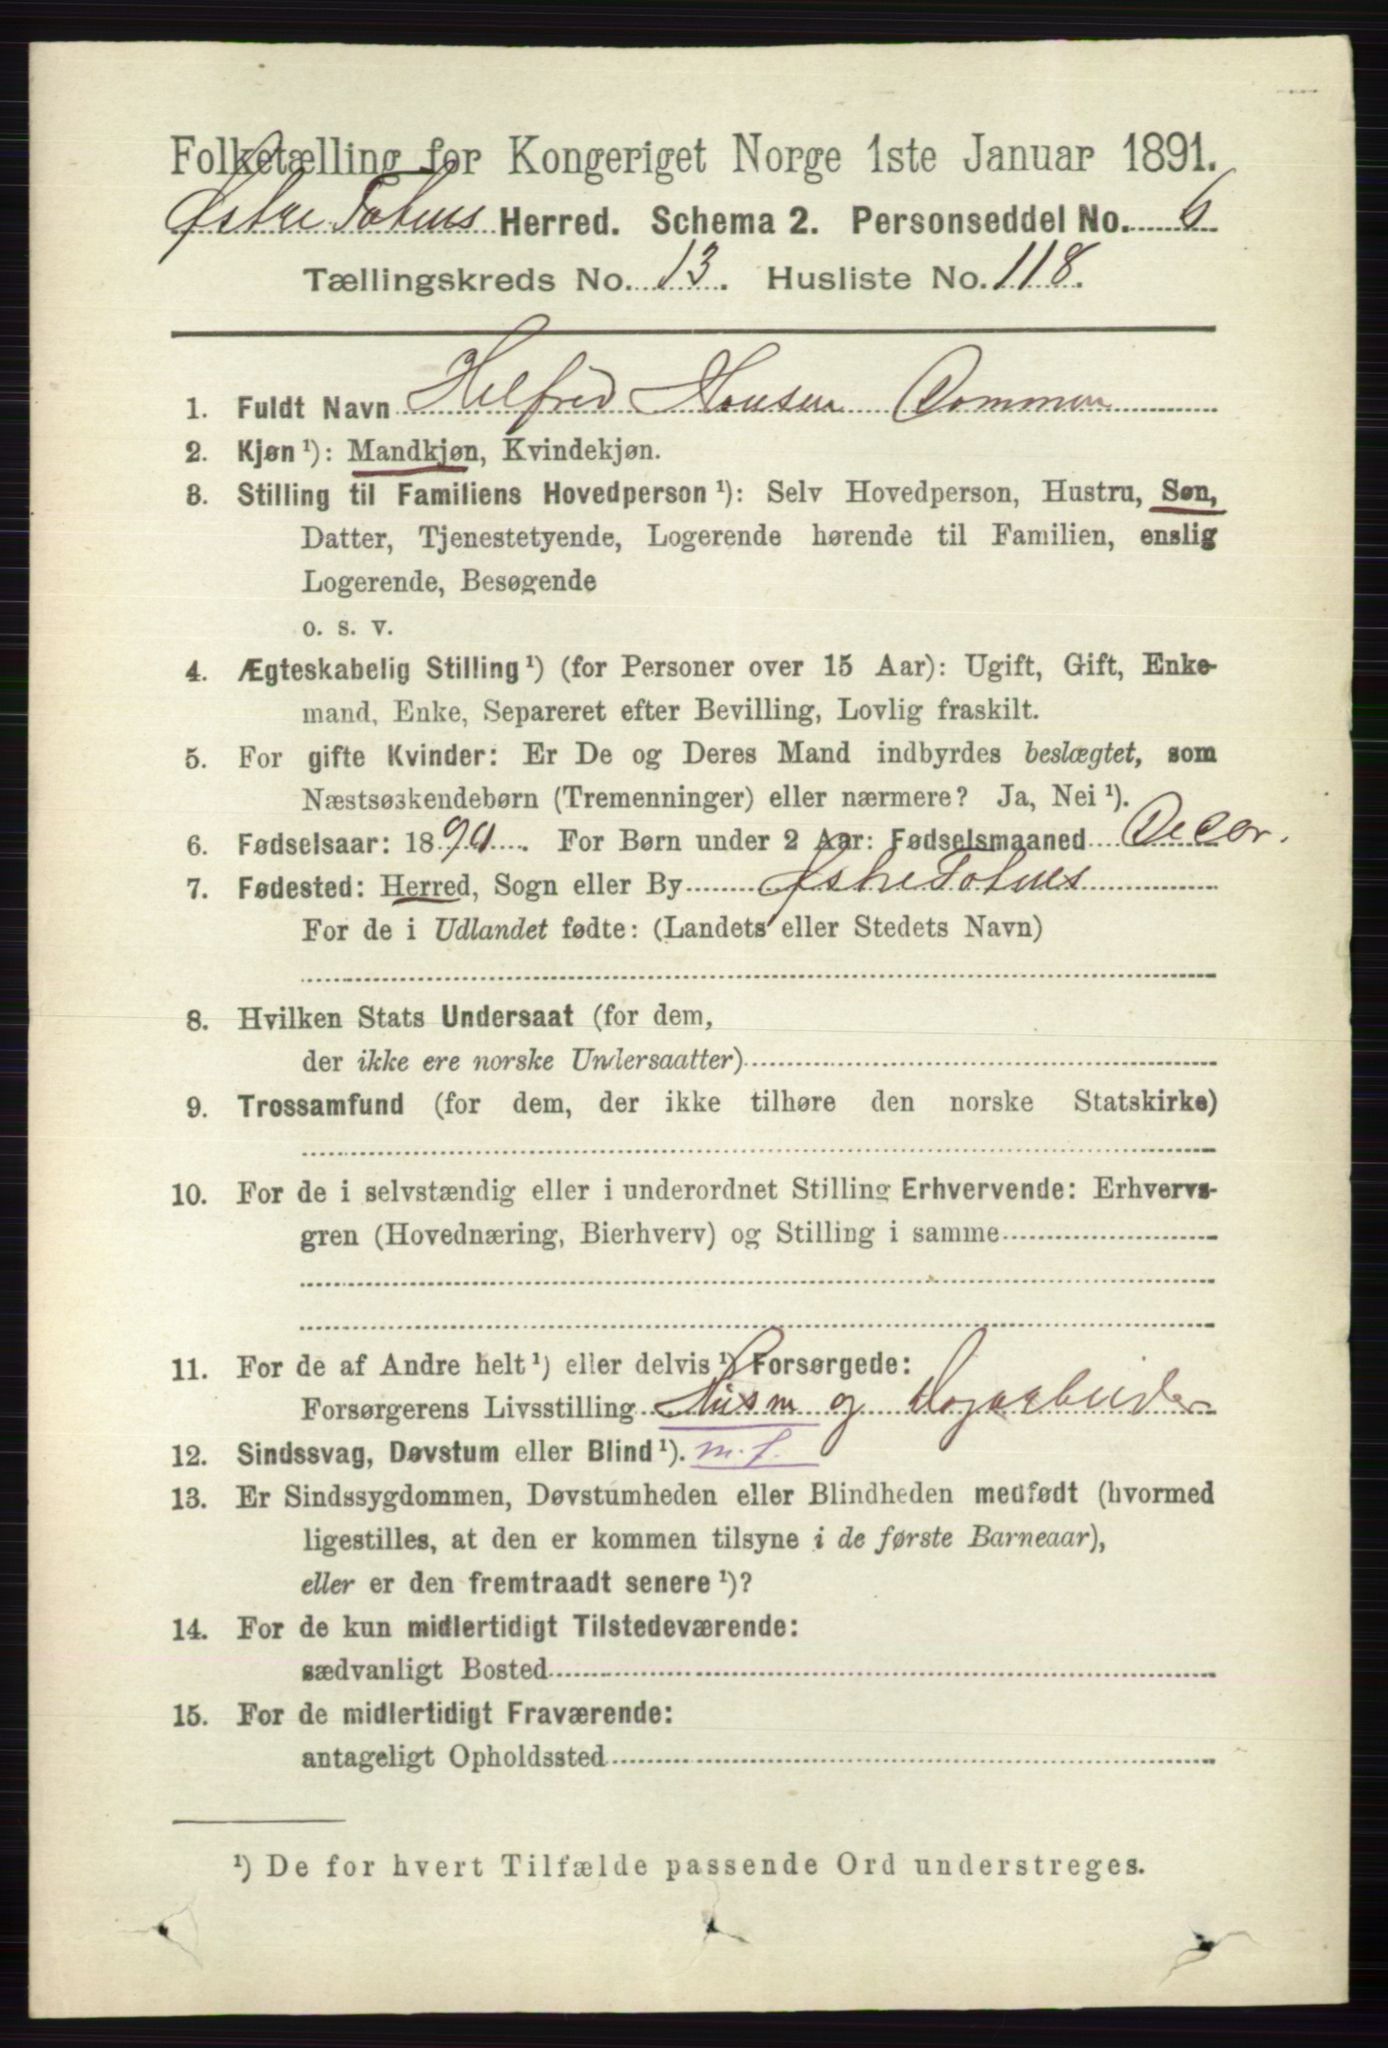 Folketælling for Kongeriget Norge 1ste Januar 1891.
Østre Totens Herred. Schema 2. Personseddel No. 6
Tællingskreds No. 13. Husliste No. 118.
1. Fuldt Navn Helfred Hansen Dommen
2. Kjøn ¹): Mandkjøn, Kvindekjøn.
3. Stilling til Familiens Hovedperson ¹): Selv Hovedperson, Hustru, Søn,
Datter, Tjenestetyende, Logerende hørende til Familien, enslig
Logerende, Besøgende
o. s. v.
4. Ægteskabelig Stilling ¹) (for Personer over 15 Aar): Ugift, Gift, Enke-
mand, Enke, Separeret efter Bevilling, Lovlig fraskilt.
5. For gifte Kvinder: Er De og Deres Mand indbyrdes beslægtet, som
Næstsøskendebørn (Tremenninger) eller nærmere? Ja, Nei ¹).
6. Fødselsaar: 1890. For Børn under 2 Aar: Fødselsmaaned Decbr.
7. Fødested: Herred, Sogn eller By Østre Totens
For de i Udlandet fødte: (Landets eller Stedets Navn)
8. Hvilken Stats Undersaat (for dem,
der ikke ere norske Undersaatter)
9. Trossamfund (for dem, der ikke tilhøre den norske Statskirke)
10. For de i selvstændig eller i underordnet Stilling Erhvervende: Erhvervs-
gren (Hovednæring, Bierhverv) og Stilling i samme
11. For de af Andre helt ¹) eller delvis ¹) Forsørgede:
Forsørgerens Livsstilling Husm og Dagarbeider
12. Sindssvag, Døvstum eller Blind ¹). m. f.
13. Er Sindssygdommen, Døvstumheden eller Blindheden medfødt (hvormed
ligestilles, at den er kommen tilsyne i de første Barneaar),
eller er den fremtraadt senere ¹)?
14. For de kun midlertidigt Tilstedeværende:
sædvanligt Bosted
15. For de midlertidigt Fraværende:
antageligt Opholdssted
¹) De for hvert Tilfælde passende Ord understreges.